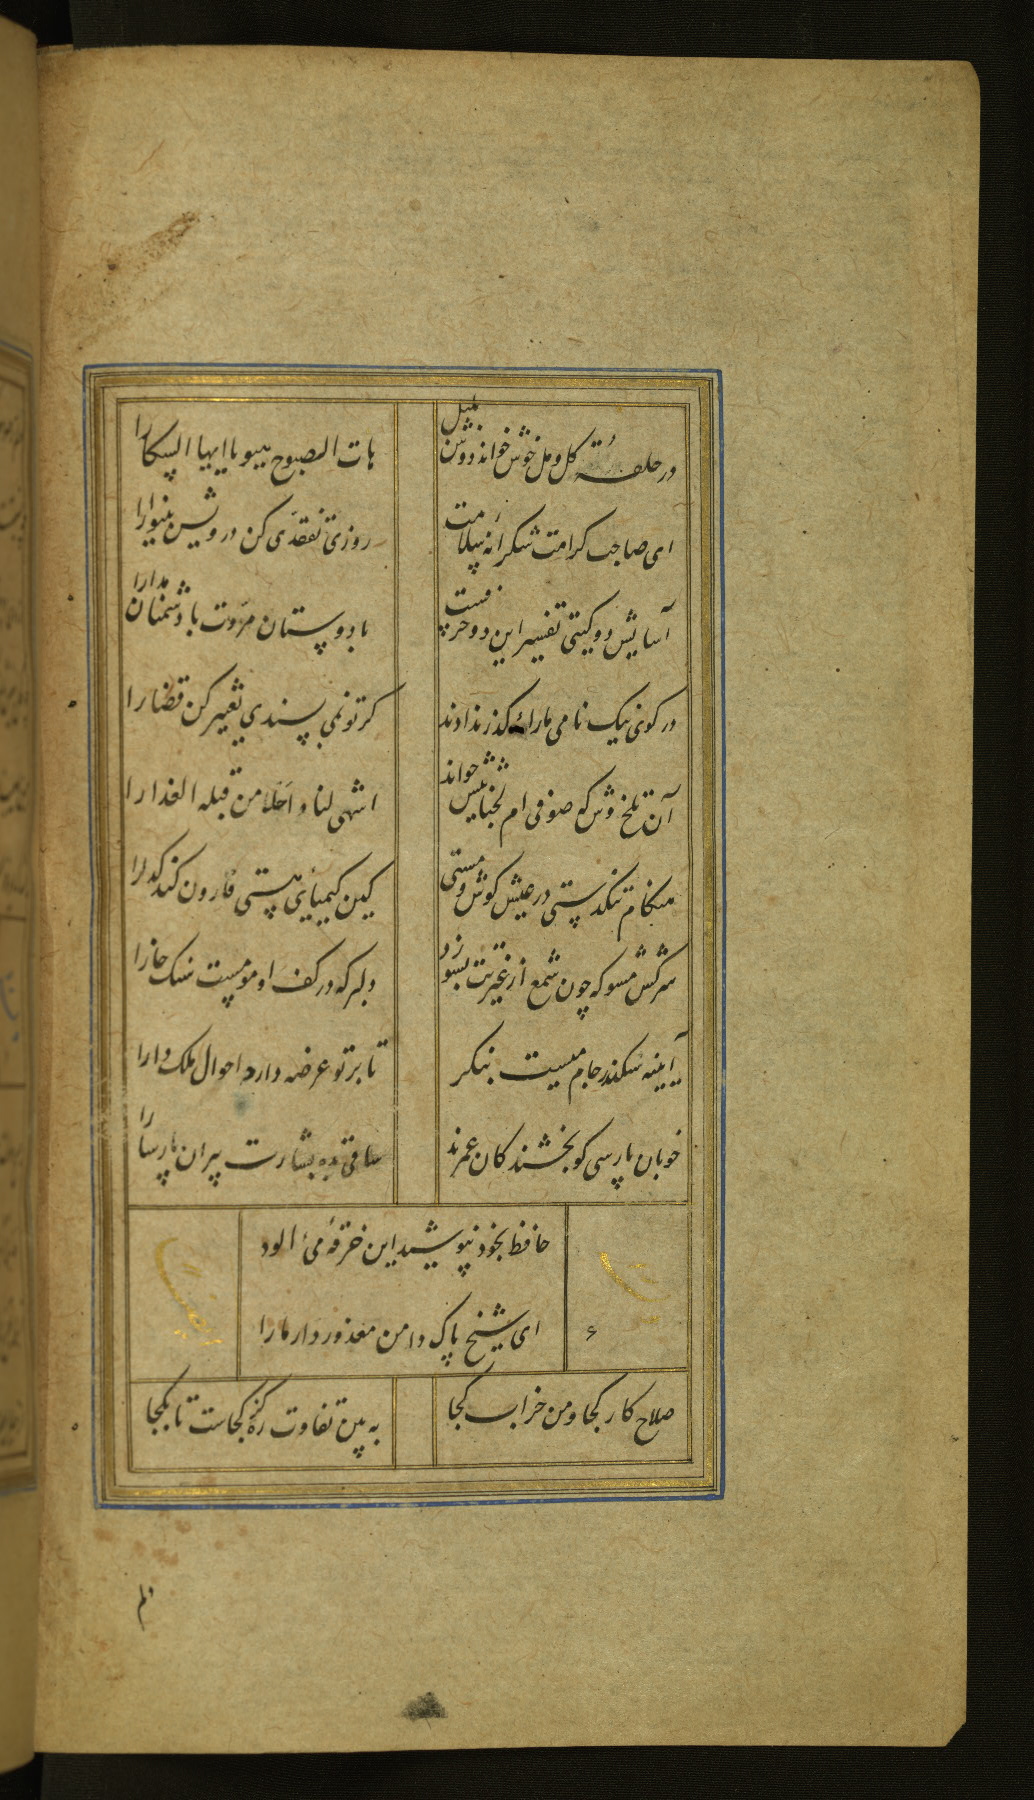 در حلقهٔ گل و مل خوش خواند دوش بلبل
هات الصبوح هیبو یا ایها السکارا
ای صاحب کرامت شکرانه سلامت
روزی تفقدی کن درویش بینوا را
آسایش دو گیتی تفسیر این دو حرفست
با دوستان مروت با دشمنان مدارا
در کوی نیک نامی ما را گذر ندادند
کر تو نمی پسندی تغییر کن قضا را
آن تلخ وش که صوفی ام الخبائثش خواند
اشهی لنا و احلا من قبله العذارا
هنکام تنکدستی در عیش کوش و مستی
کین کیمیای هستی قارون کند کدا را
سرکش مشو که چون شمع از غیرتت بسوزد
دلبر که در کف او مومست سنک خارا
آیینه سکندر جام میست بنکر
تا بر تو عرضه دارد احوال ملک دارا
خوبان پارسی کو بخشندکان عمرند
ساقی بده بشارت پیران پارسا را
حافظ بخود نپوشید این خرقهٔ می الود
ای شیخ پاک دامن معذور دار ما را
صلاح کار کجا و من خراب کجا
به بین تفاوت ره کز کجاست تا بکجا